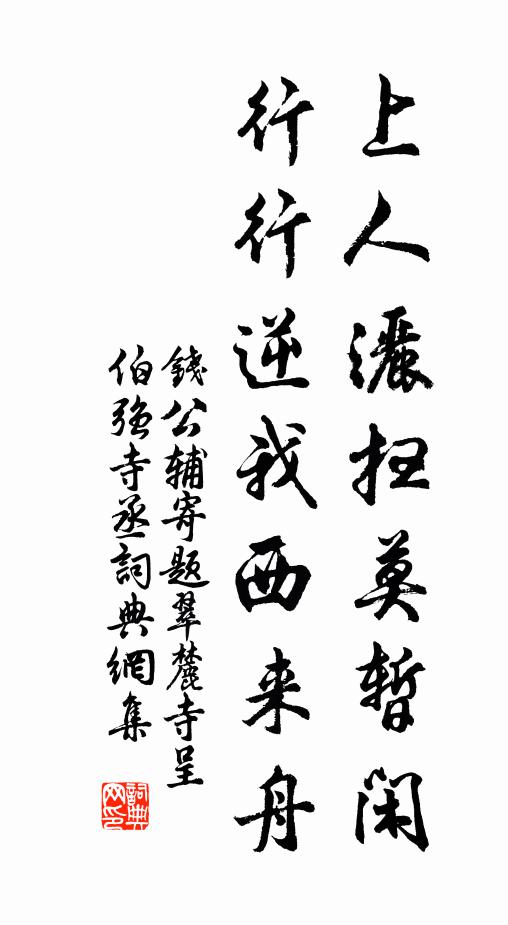 上人灑扫莫暂闲
行行逆我西来舟
錢公辅寄题翠麓寺呈
伯强寺丞詞典網集
詞典网印